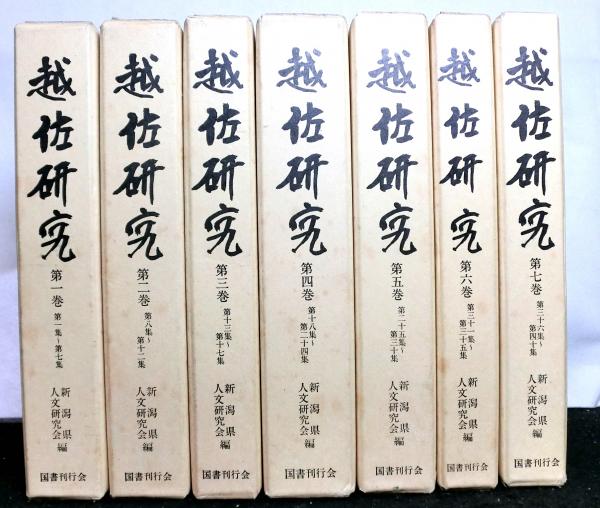 越佐研究
第一巻
第一集～第七集
新潟県
人文研究会
編
国書刊行会
越佐研究
第二巻
第八集～
第十二集
新潟県
人文研究会
編
国書刊行会
越佐研究
第三巻
第十三集～
第十七集
新潟県
人文研究会
編
国書刊行会
越佐研究
第四巻
第十八集～
第二十四集
新潟県
人文研究会
編
国書刊行会
越佐研究
第五巻
第二十五集～
第三十集
新潟県
人文研究会
編
国書刊行会
越佐研究
第六巻
第三十一集～
第三十五集
新潟県
人文研究会
編
国書刊行会
越佐研究
第七巻
第三十六集～
第四十集
新潟県
人文研究会
編
国書刊行会